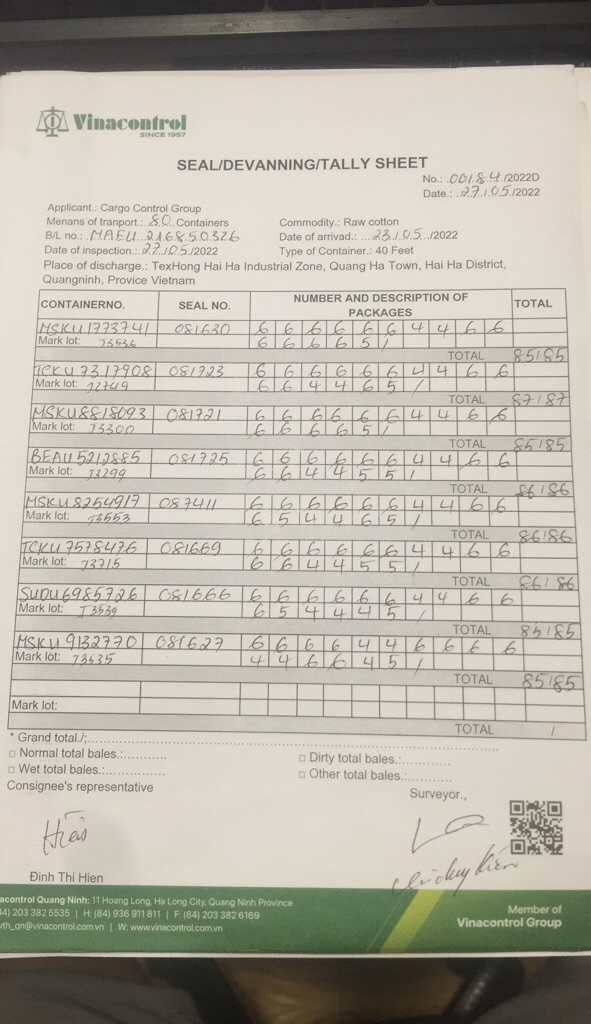 Vinacontrol
SINCE 1957
SEAL/DEVANNING/TALLY SHEET
No.: 00184/2022D
Date.: 27/05/2022
Applicant.: Cargo Control Group
Menans of tranport.: 80 Containers
Commodity.: Raw cotton
B/L no.: MAEU 216850326
Date of arrivad.: 23/05/2022
Date of inspection.: 27/05/2022
Type of Container.: 40 Feet
Place of discharge.: TexHong Hai Ha Industrial Zone, Quang Ha Town, Hai Ha District,
Quangninh, Provice Vietnam
CONTAINERNO. SEAL NO. NUMBER AND DESCRIPTION OF PACKAGES TOTAL
MSKU 1773741 081630 6 6 6 6 6 6 4 4 6 6
Mark lot: J3536 6 6 6 6 5 /
TOTAL 85/85
TCKU 7317908 081723 6 6 6 6 6 6 4 4 6 6
Mark lot: 6 6 4 4 6 5 /
TOTAL 87/87
MSKU8818093 081721 6 6 6 6 6 6 4 4 6 6
Mark lot: J3300 6 6 6 6 5 /
TOTAL 85/85
BEAU5212885 081725 6 6 6 6 6 6 4 4 6 6
Mark lot: J3299 6 6 4 4 5 5 /
TOTAL 86/86
MSKU8254917 087411 6 6 6 6 6 6 4 4 6 6
Mark lot: J3553 6 5 4 4 6 5 /
TOTAL 86/86
TCKU7578476 081669 6 6 6 6 6 6 4 4 6 6
Mark lot: J3715 6 6 4 4 5 5 /
TOTAL 86/86
SUDU6985726 081666 6 6 6 6 6 6 4 4 6 6
Mark lot: J3539 6 5 4 4 4 5 /
TOTAL 85/85
MSKU9132770 081627 6 6 6 6 4 4 6 6 6 6
Mark lot: J3535 4 4 6 6 4 5 /
TOTAL 85/85
Mark lot:
TOTAL /
* Grand total./:
□ Normal total bales.:
□ Dirty total bales.:
□ Wet total bales.:
□ Other total bales.:
Consignee's representative
Surveyor.,
Hiền
Đinh Thi Hien
acontrol Quang Ninh: 11 Hoang Long, Ha Long City, Quang Ninh Province
4) 203 382 5535 | H: (84) 936 911 811 | F: (84) 203 382 6169
vth_qn@vinacontrol.com.vn | W: www.vinacontrol.com.vn
Member of
Vinacontrol Group